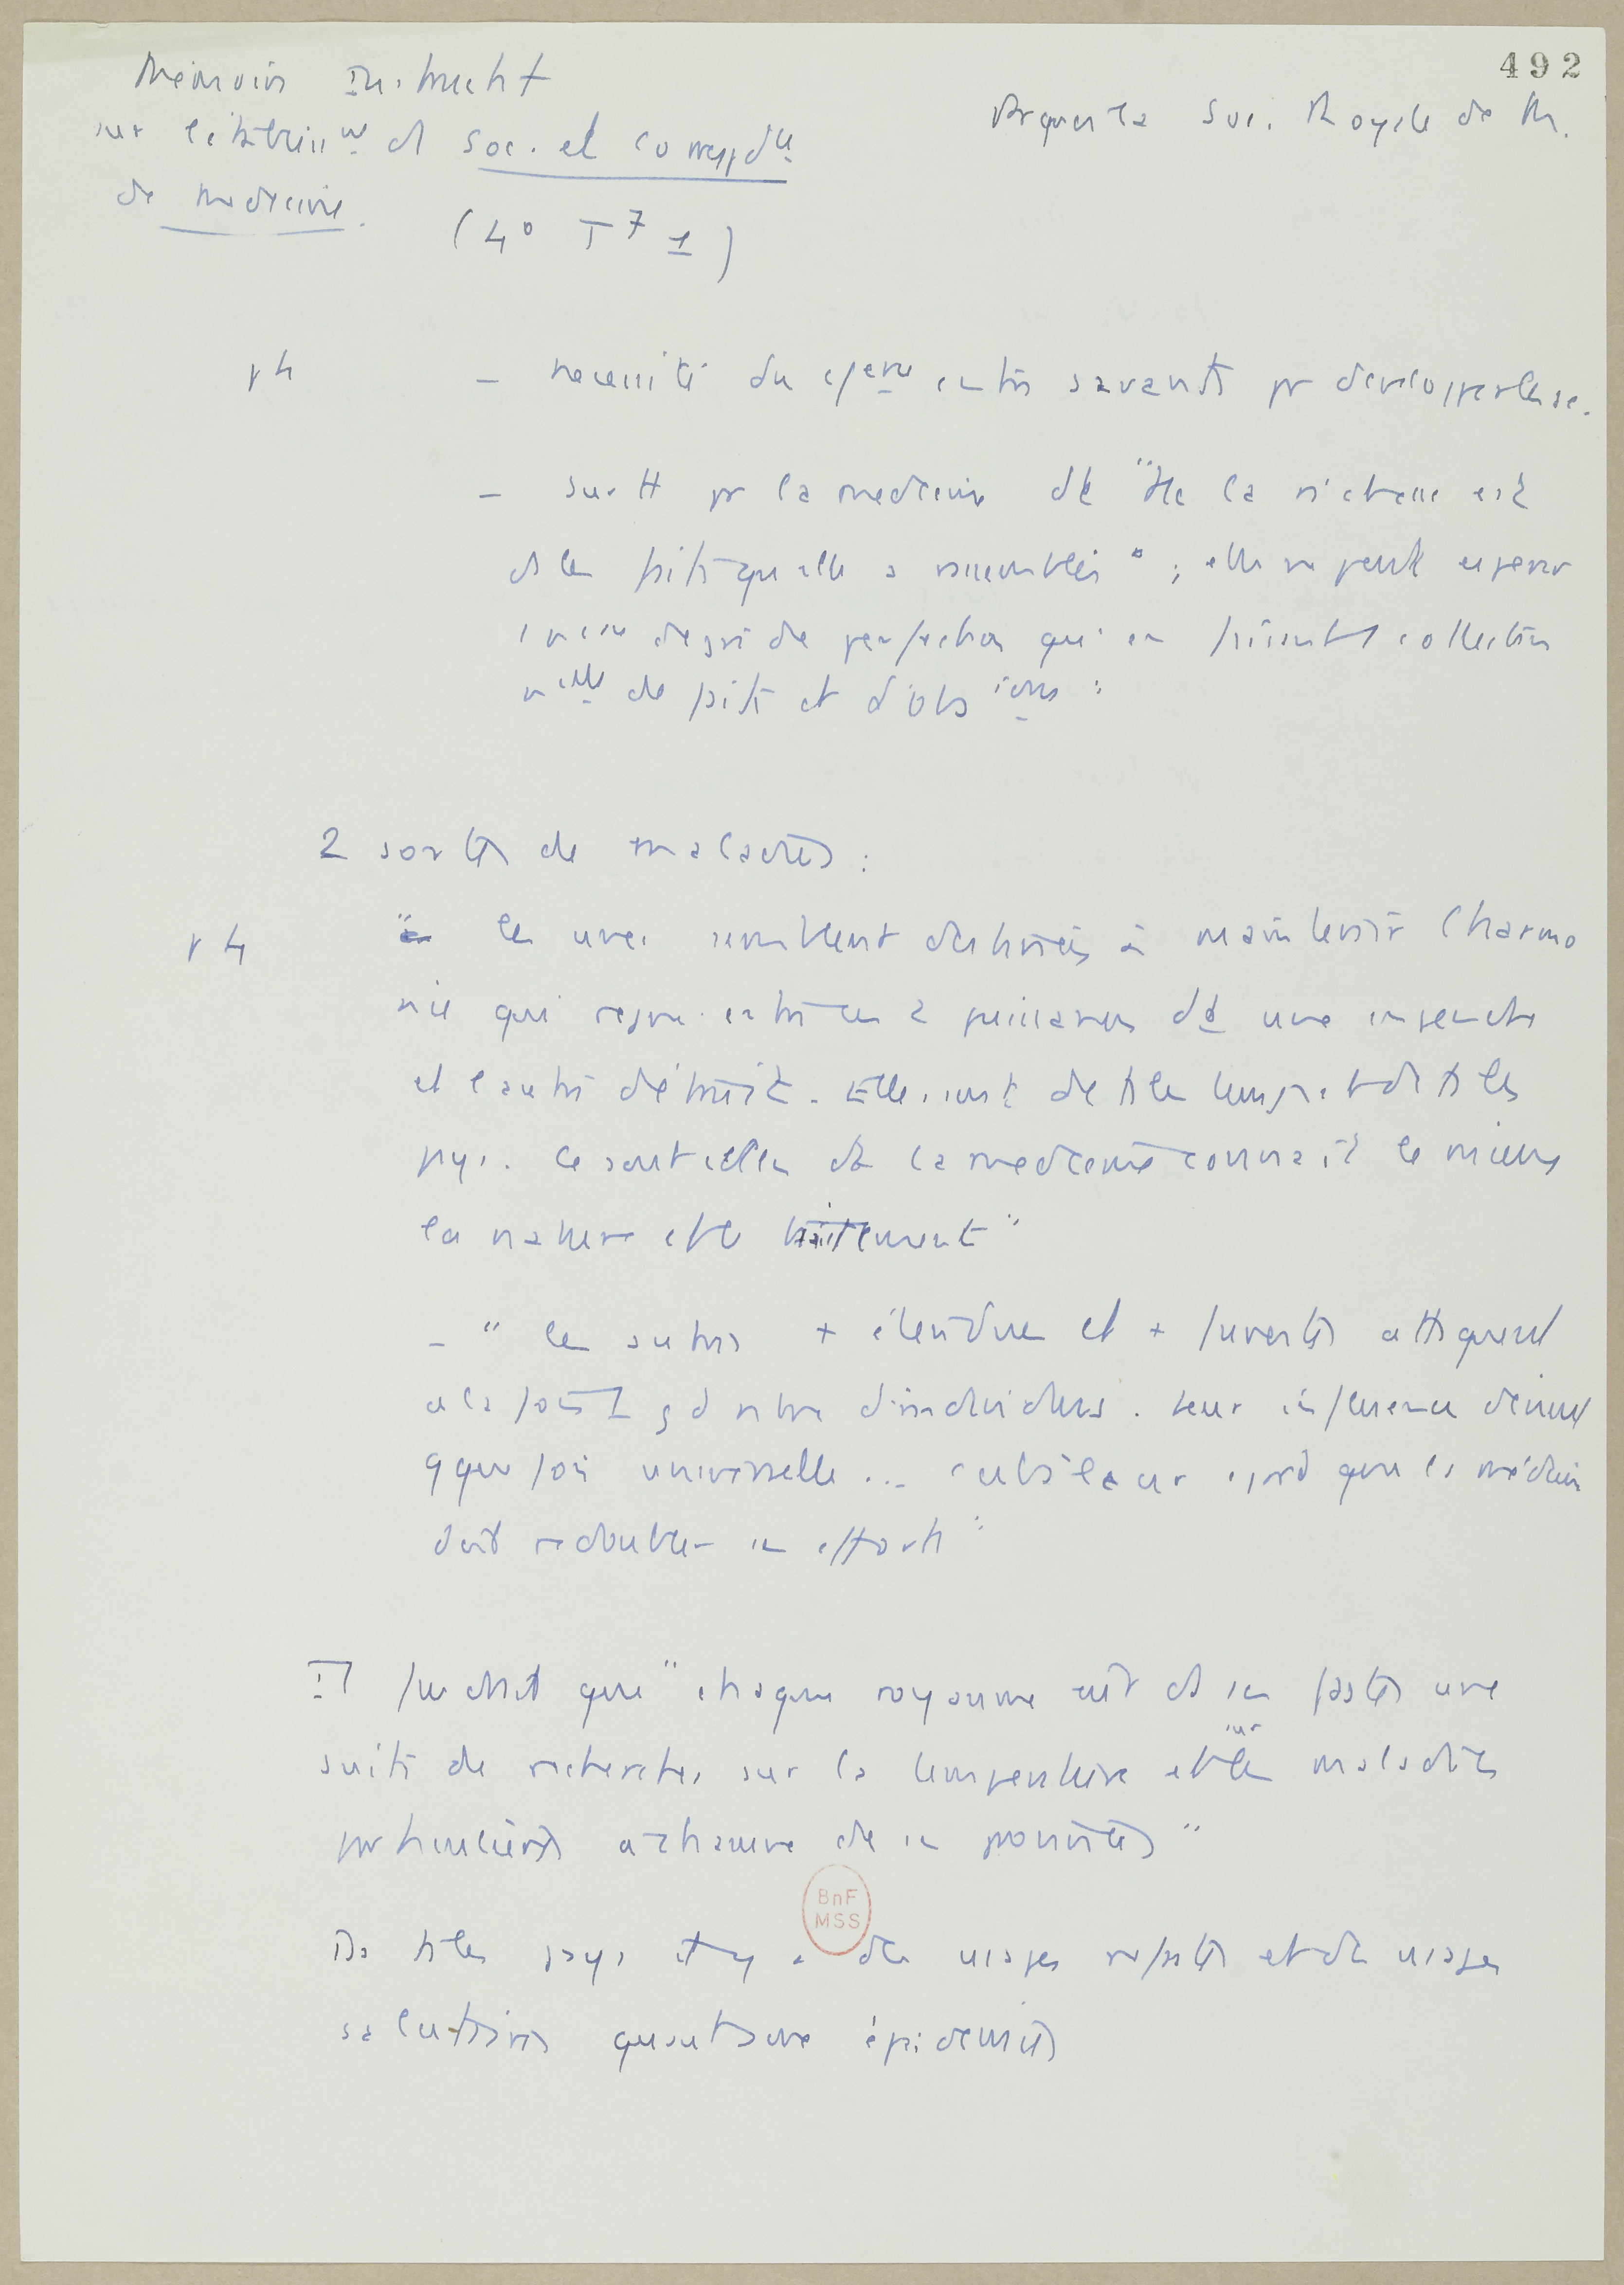 492
Mémoire instructif
sur l'établissmt d soc. et correspdce
de médecine.
(4° T7 1)
par la Soc. Royale de M.
p 4
– nécessité du entre savants pr développer les sc.
– surtt pr la médecine dt "tte la richesse est
ds les faits qu'elle a rassemblés" ; elle ne peut espérer
degré de perfection qu'en faisant collection
de faits et d'obsions :
2 sortes de maladies :
p 4
" les unes semblent destinées à maintenir l'harmo
nie qui règne entre les 2 puissances dt une engendre
et l'autre détruit. Elles sont de ts les temps et de ts les
pays. Ce sont celles dt la médecine connait le mieux
la nature et le traitement"
– " les autres + étendues et + funestes attaquent
à la fois 1 gd nbre d'individus. Leur influence devient
qque fois universelle ... c'est à leur égard que le médecin
doit redoubler ses efforts"
Il faudrait que "chaque royaume eût ds ses fastes une
suite de recherches sur la température et sur les maladies
particulières à chacune de ses provinces"
Ds ts les pays il y a des usages néfastes et des usages
salutaires quant aux épidémies
BnF
MSS